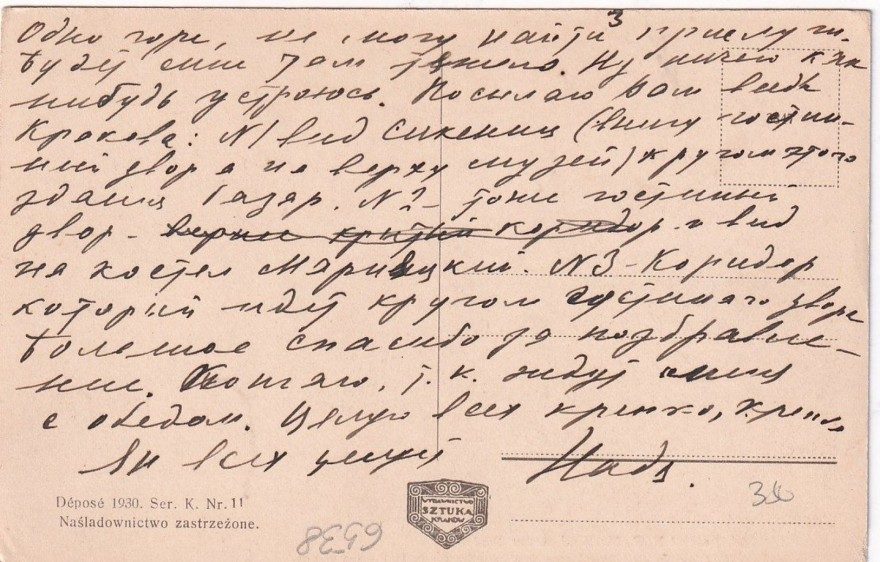 3
Одно горе, не могу найти прислуги.
Будет мне там тяжело. Ну ничего как
нибудь устроюсь. Посылаю Вам виды
Кракова: N1 вид Сукениц (внизу гостин-
ный двор а на верху музей) кругом этого
здания базар. N2 - тоже гостинный
двор - и вид
на костел Марияцкий. N3 - Коридор
который идет кругом гостинаго двора
Большое спасибо за поздравле-
ние. Кончаю, т. к. ждут меня
с обедом. Целую всех крепко, крепко
Ян всех целует Надя.
Déposé 1930. Ser. K. Nr. 11
Naśladownictwo zastrzeżone.
WYDAWNICTWO
SZTUKA
KRAKÓW
36
6538